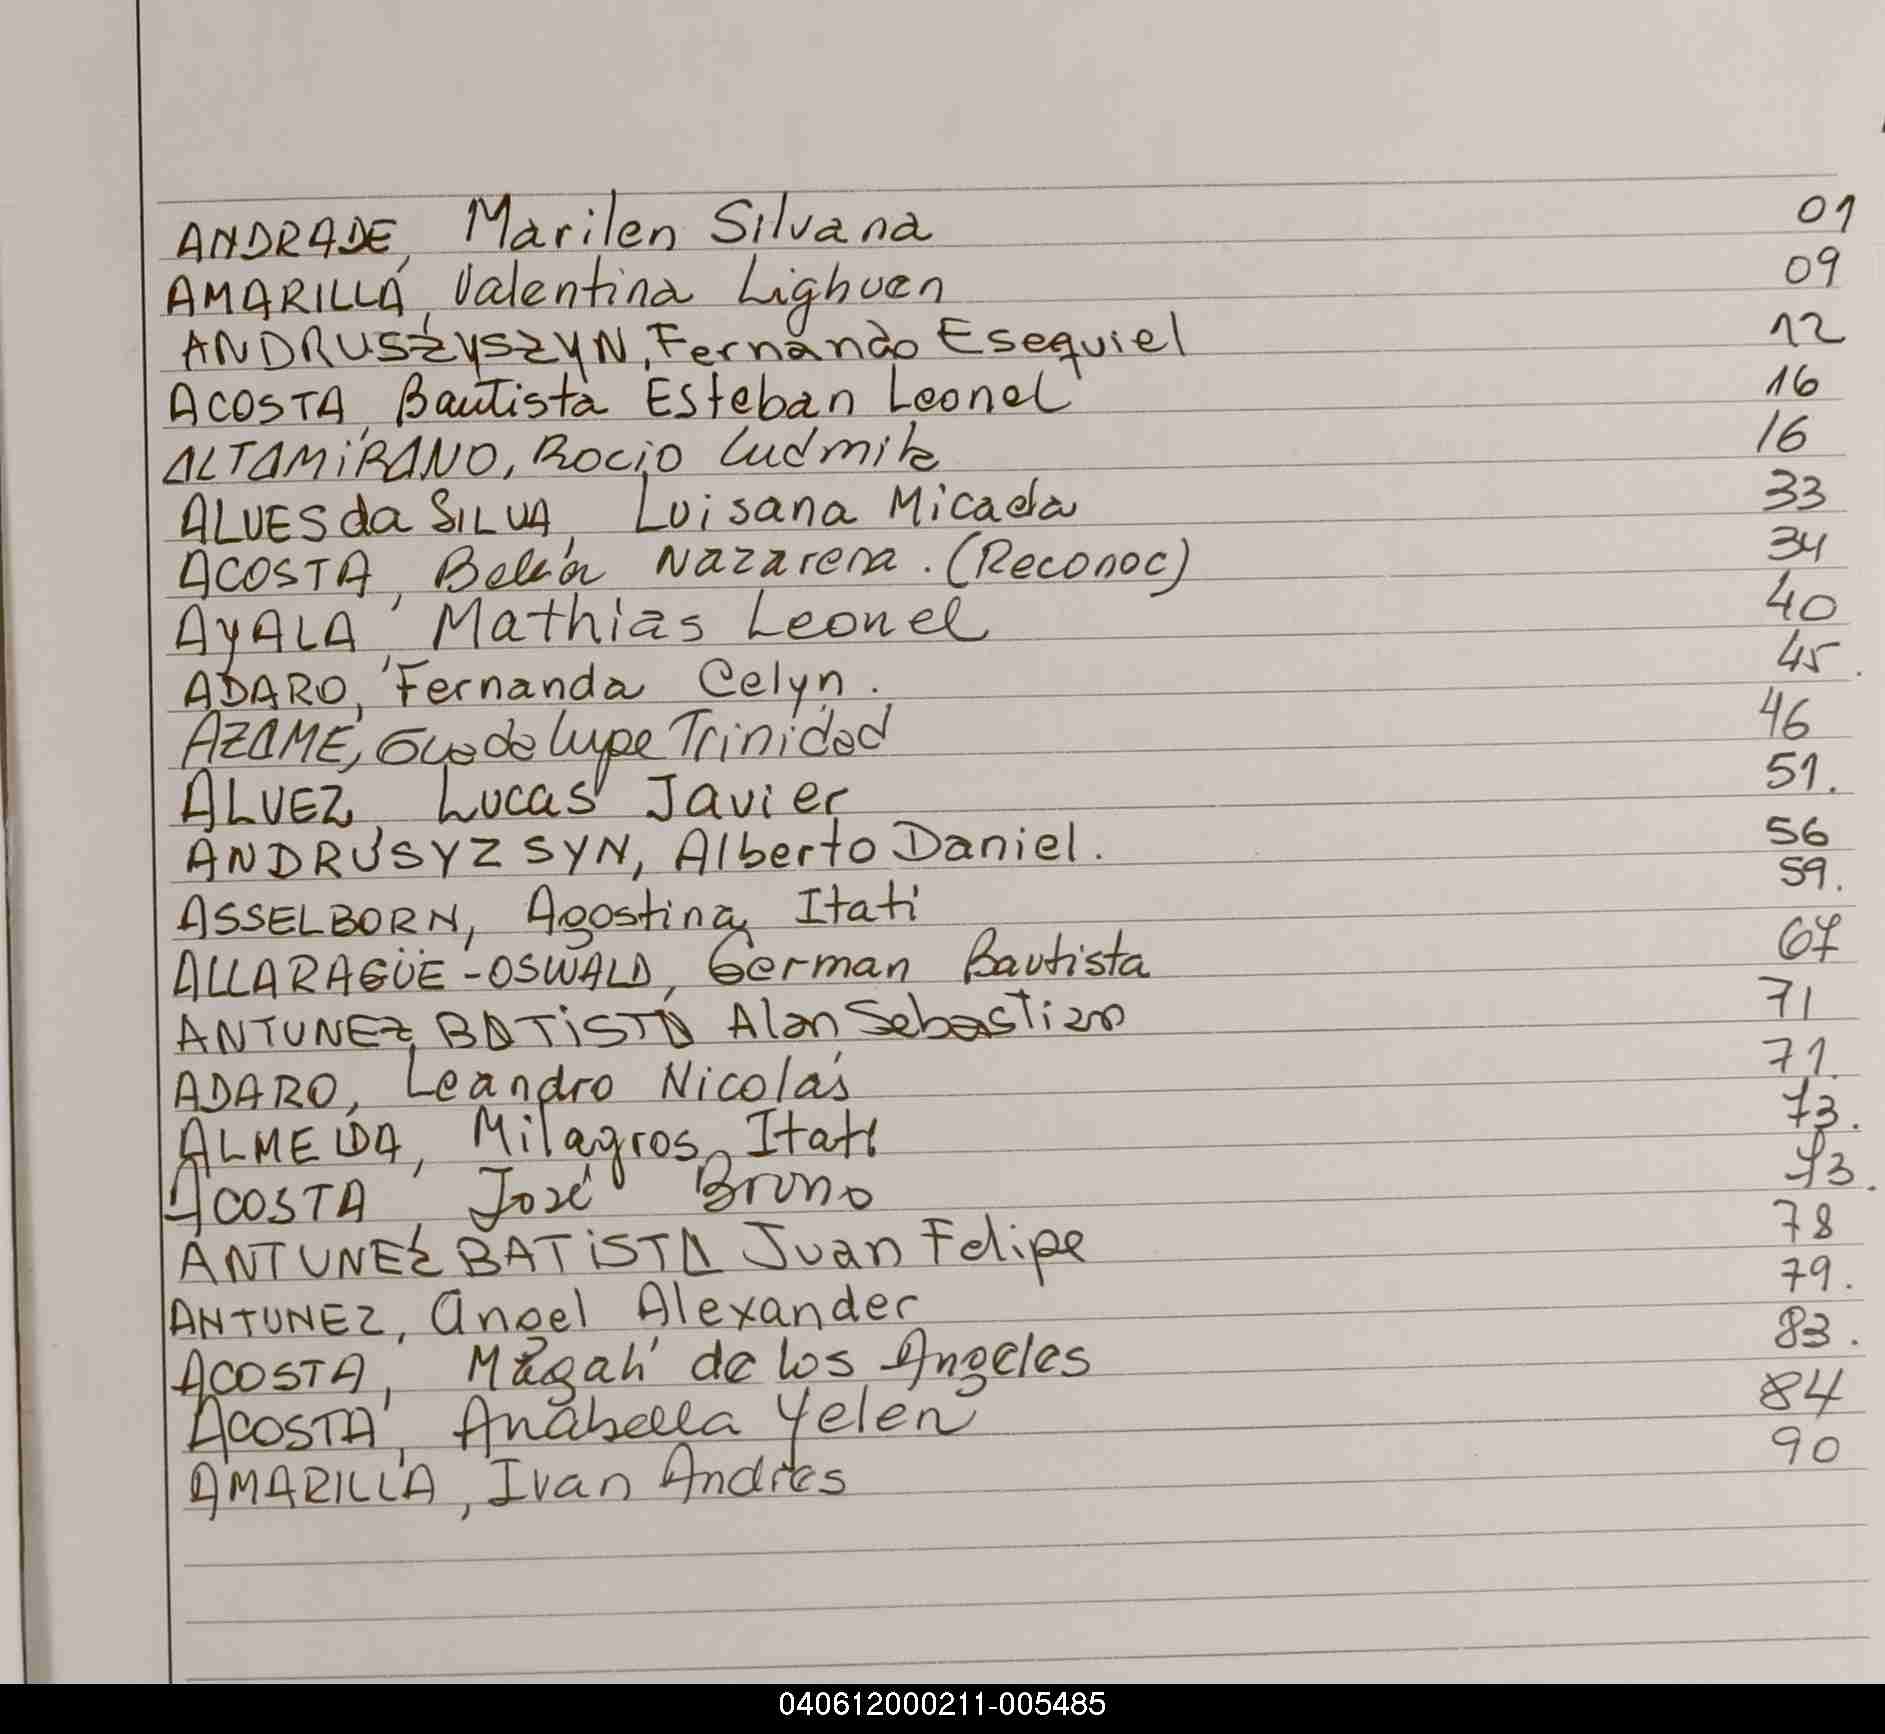 ANDRADE, Marilen Silvana 01
AMARILLA, Valentina Lighuen 09
ANDRUSZYSZYN, Fernando Esequiel 12
ACOSTA, Bautista Esteban Leonel 16
ALTAMiRANO, Rocio Ludmila 16
ALVES da SILVA, Luisana Micaela 33
ACOSTA, Belén Nazarena. (Reconoc) 34
AyALA, Mathias Leonel 40
ADARO, Fernanda Celyn. 45.
AZAME, Guadalupe Trinidad 46
ALVEZ, Lucas Javier 51.
ANDRUSYZSYN, Alberto Daniel. 56
ASSELBORN, Agostina Itatí 59.
ALLARAGÜE-OSWALD, German Bautista 67
ANTUNEZ BATiSTA Alan Sebastian 71
ADARO, Leandro Nicolás 71.
ALMEIDA, Milagros Itatí 73.
ACOSTA, José Bruno 73.
ANTUNEZ BATiSTA Juan Felipe 78
ANTUNEZ, Angel Alexander 79.
ACOSTA, Magalí de los Angeles 83.
ACOSTA, Anabella Yelen 84
AMARILLA, Ivan Andres 90
040612000211-005485